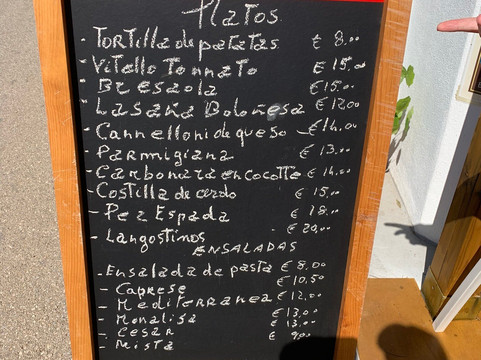 Platos
- Tortilla de patatas € 8.00
- Vitello Tonnato € 15.00
- Bresaola €15.00
- Lasaña Boloñesa € 12.00
- Cannelloni de queso - €14.00
- Parmigiana € 13.00
- Carbonara en cocotte € 14.00
- Costilla de cerdo € 15.00
- Pez Espada € 18.00
- Langostinos € 20.00
ENSALADAS
- Ensalada de pasta € 8.00
- Caprese € 10.50
- Mediterranea € 12.00
- Monalisa € 13.00
- Cesar € 13.00
- Mista € 9.00